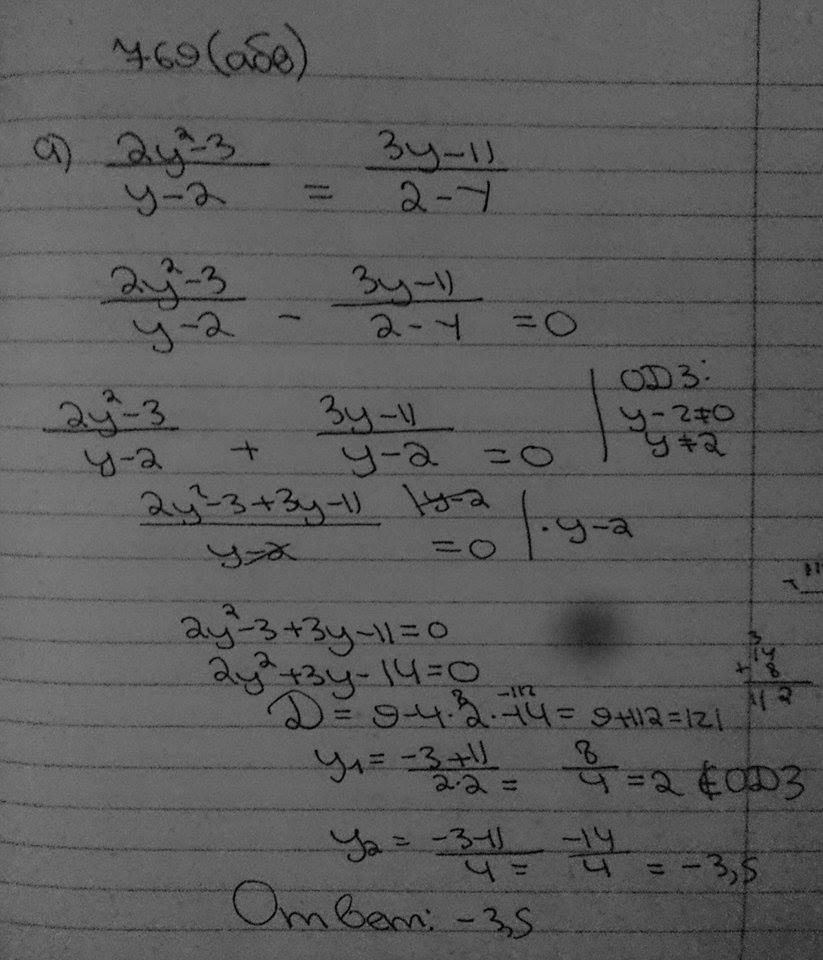 7.69(абв)
а) (2y²-3)/(y-2) = (3y-11)/(2-y)
(2y²-3)/(y-2) - (3y-11)/(2-y) =0
(2y²-3)/(y-2) + (3y-11)/(y-2) =0
ОДЗ:
y-2≠0
y≠2
(2y²-3+3y-11)/(y-2) =0 |·y-2
2y²-3+3y-11=0
2y²+3y-14=0
D = 9-4·2·-14= 9+112=121
y₁= (-3+11)/(2·2) = 8/4 =2 ∉ОДЗ
y₂= (-3-11)/4 = -14/4 = -3,5
Ответ: -3,5
3
14
8
112